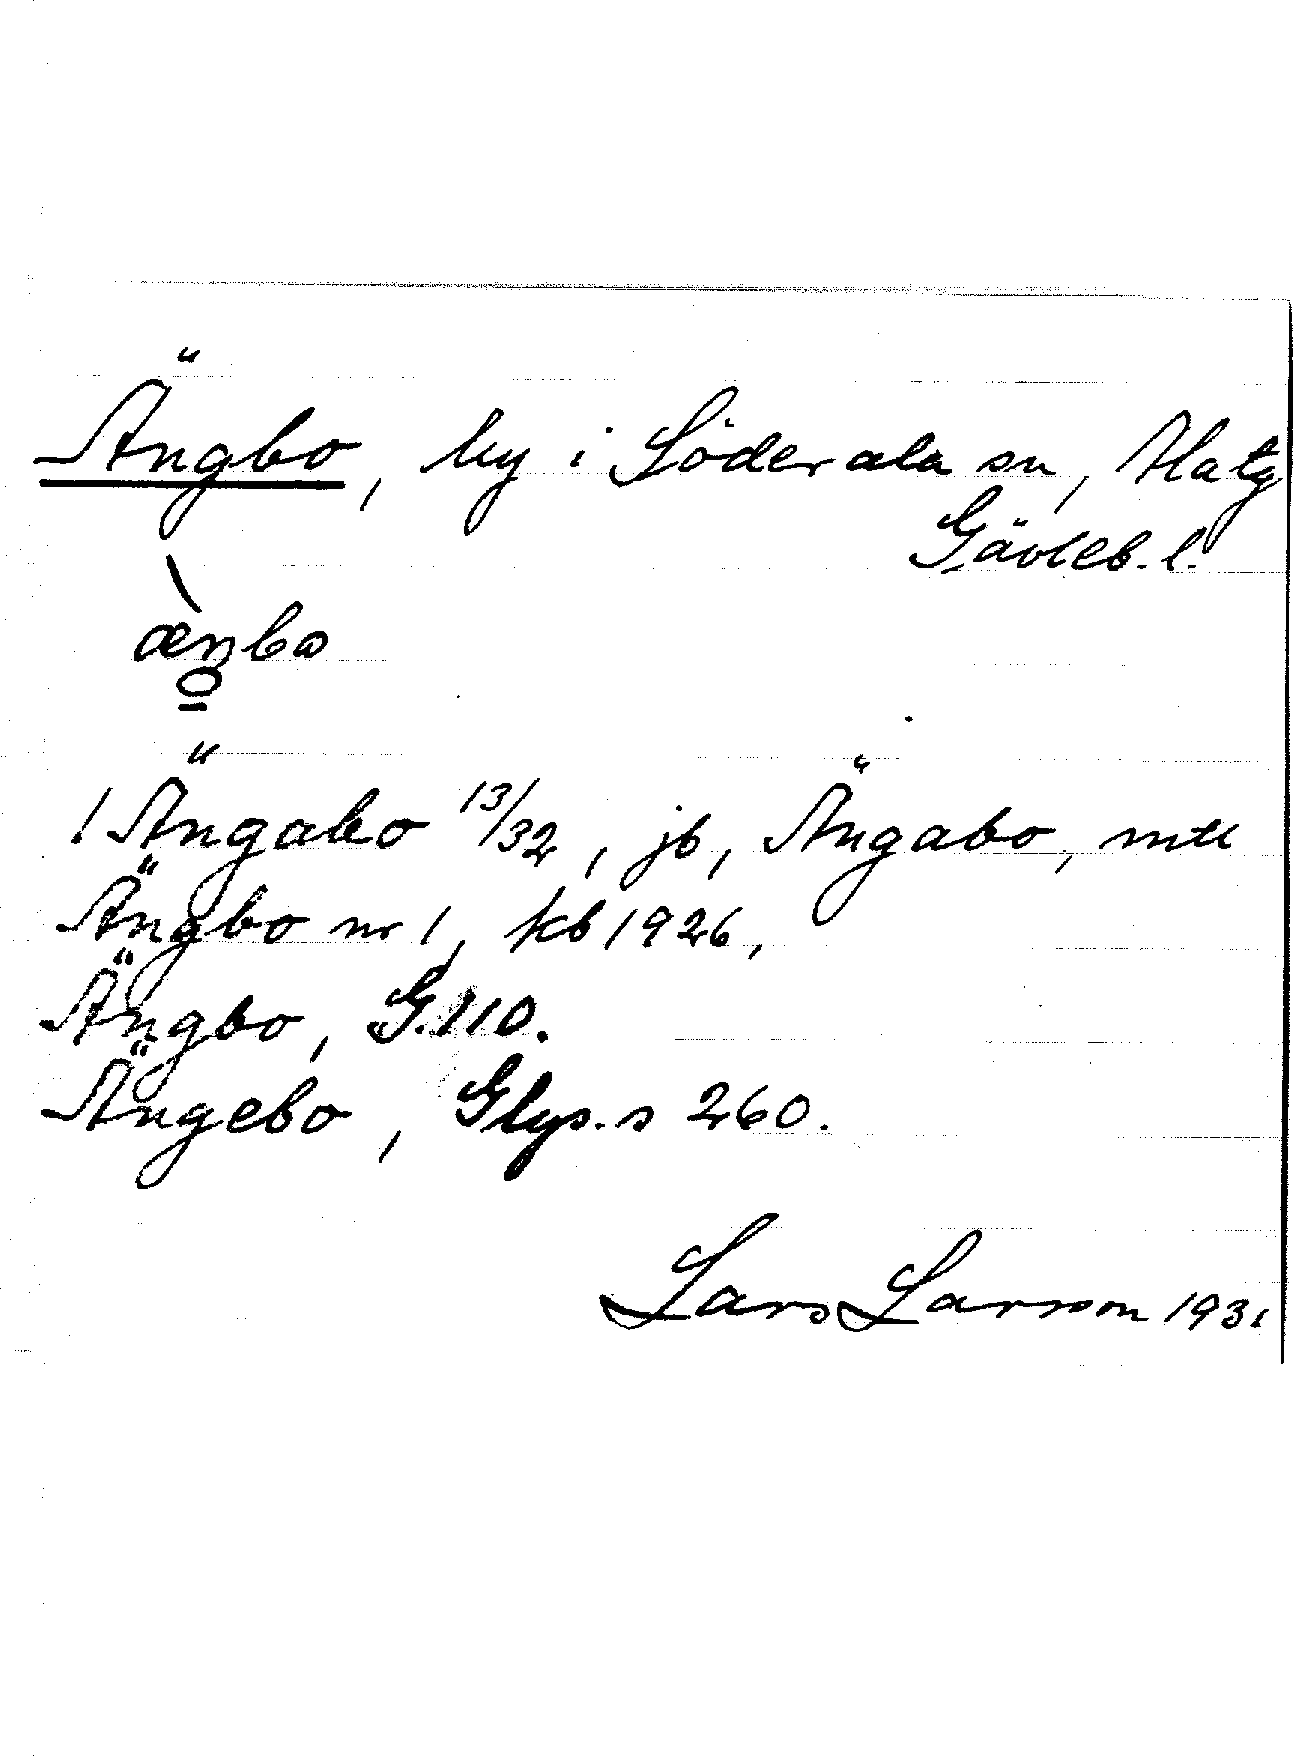 Ängbo, by i Söderala sn, Hlstg
Gävleb. l.
æŋbo
1 Ängabo 13/32, jb, Ängabo, mtl
Ängbo nr 1, kb 1926,
Ängbo, G. 110.
Ängebo, Glys. s 260.
Lars Larsson 1931